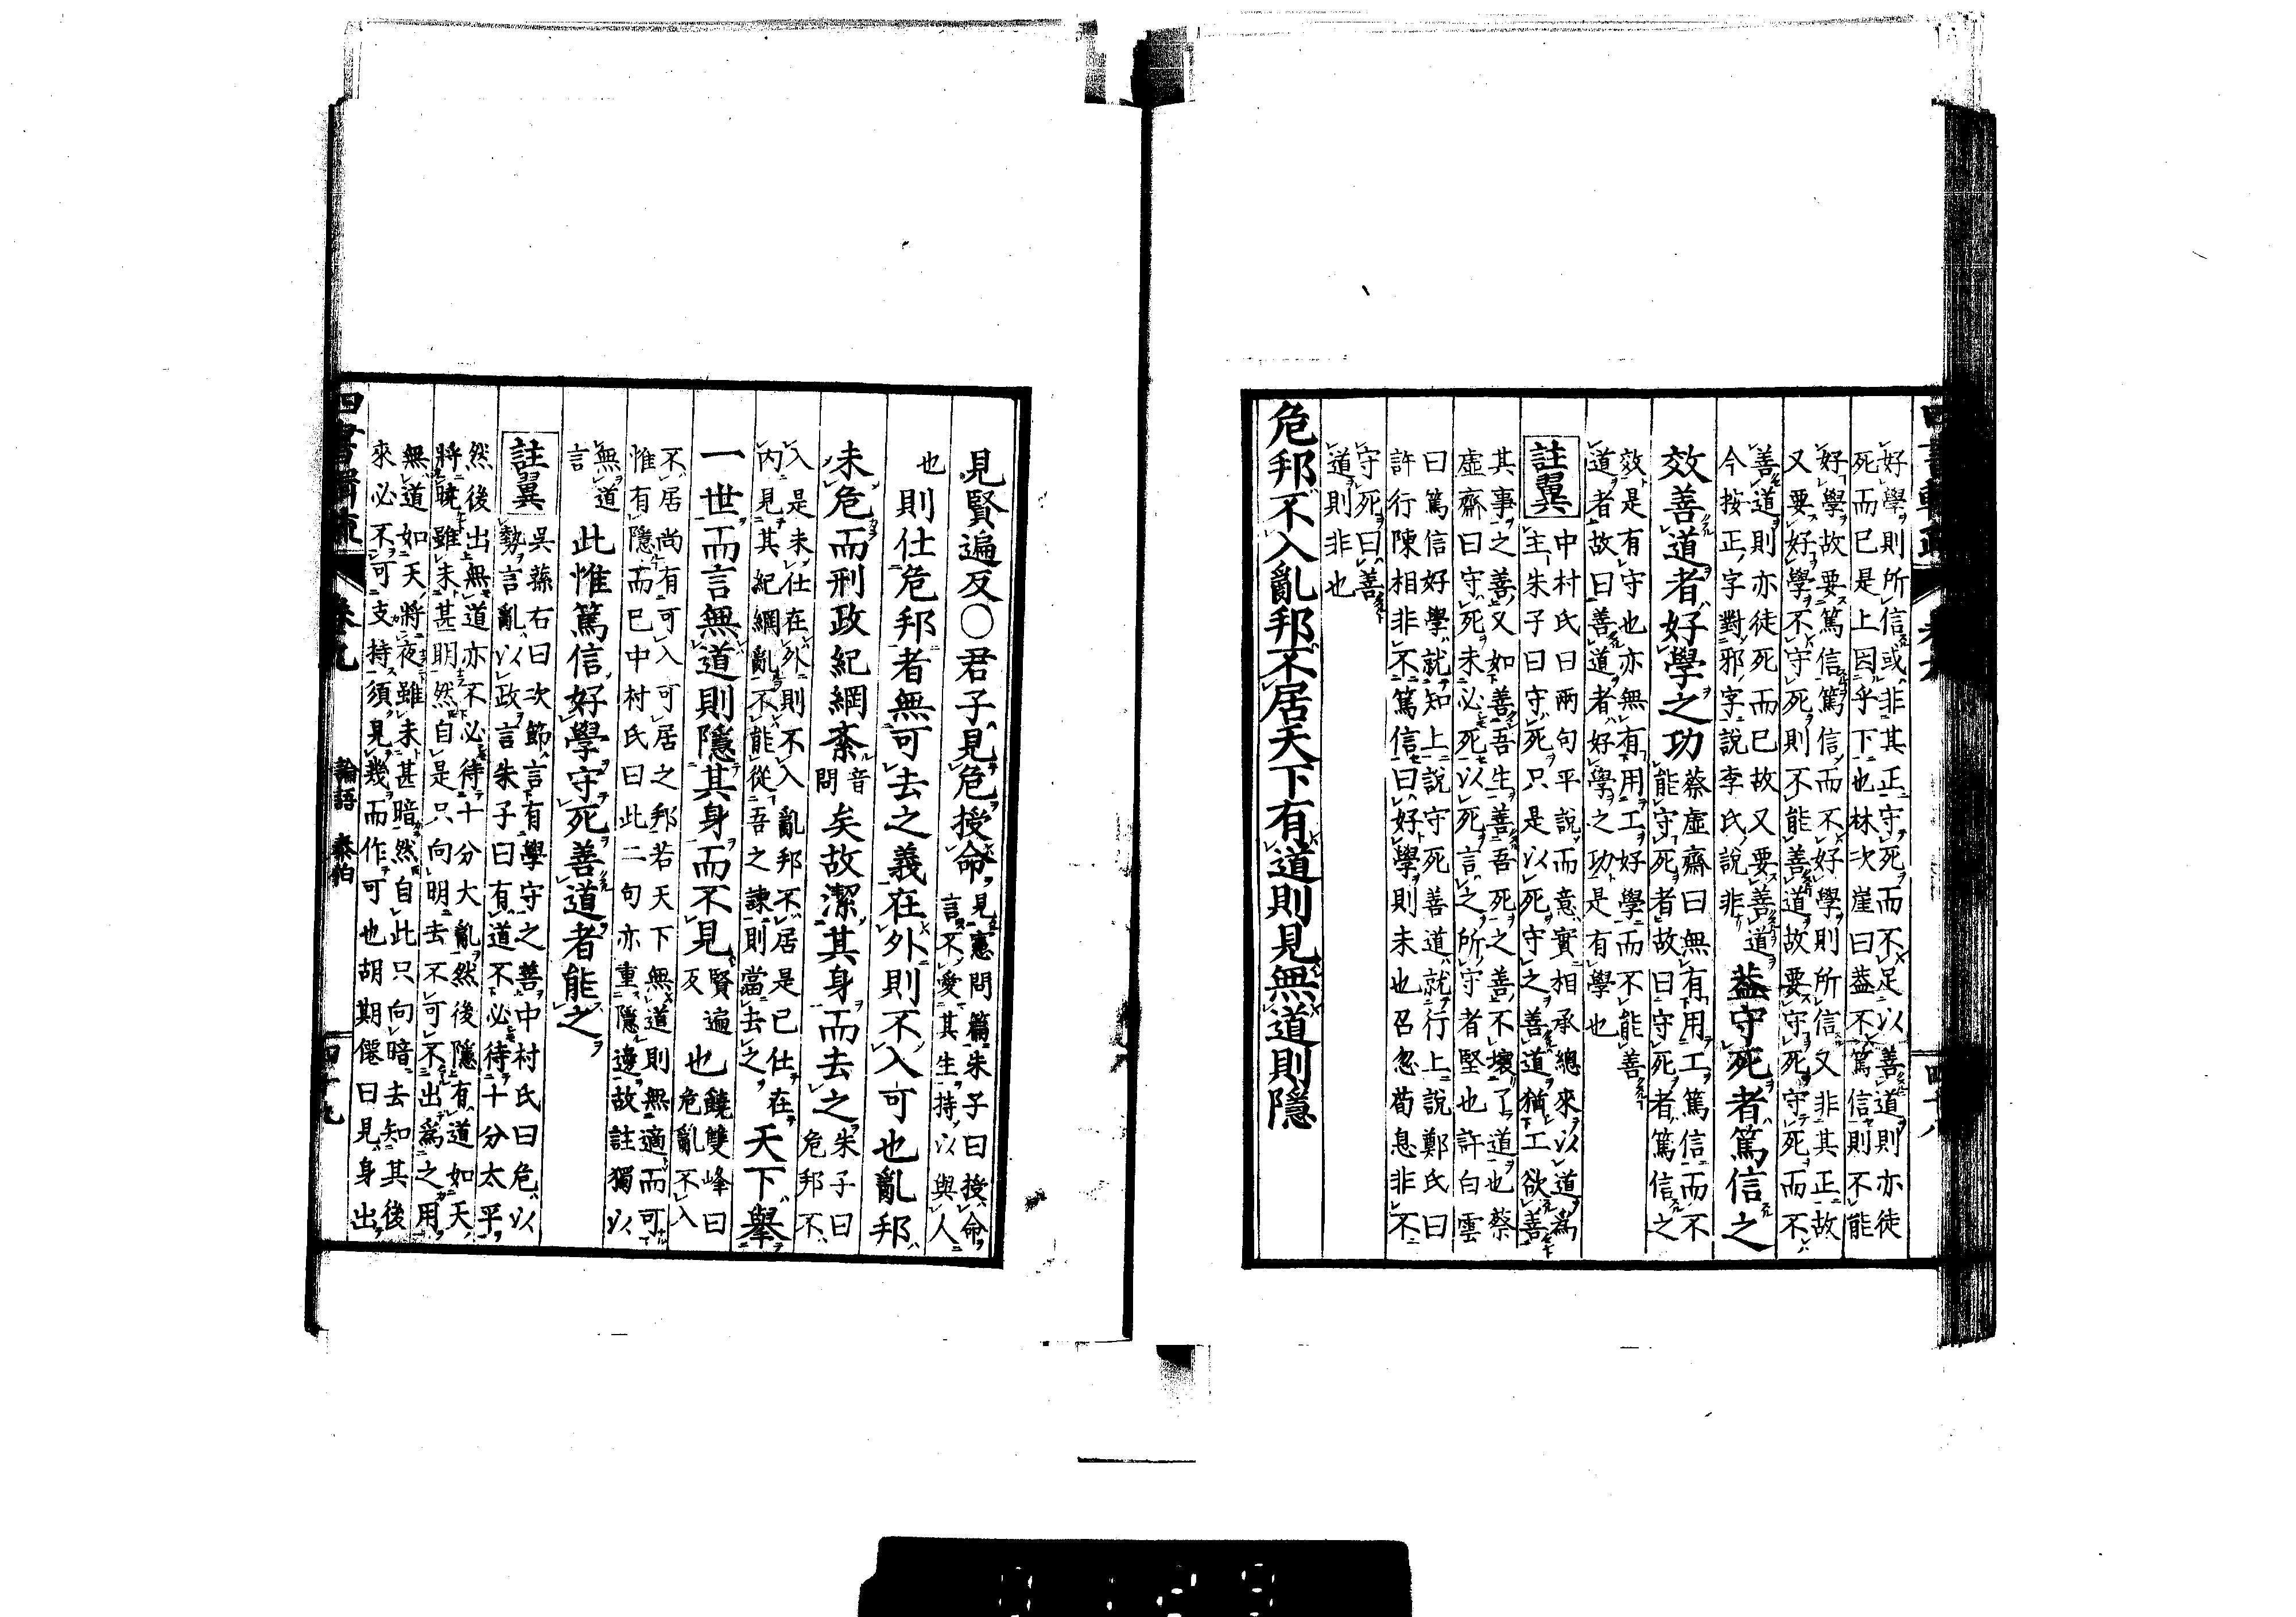 四書輯疏 卷九 四十八
好學則所信或非其正守死而不足以善道則亦徒
死而已是上因乎下也林次崖曰蓋不篤信則不能
好學故要篤信篤信而不好學則所信又非其正故
又要好學不守死則不能善道故要守死守死而不
善道則亦徒死而已故又要善道
今按正字對邪字說李氏說非
蓋守死者篤信之
效善道者好學之功
蔡虛齋曰無有用工篤信而不
能守死者故曰守死者篤信之
效是有守也亦無有用工好學而不能善
道者故曰善道者好學之功是有學也
註翼
中村氏曰兩句平說而意實相承總來以道為
主朱子曰守死只是以死守之善道猶工欲善
其事之善又如善吾生善吾死之善不壞了道也蔡
虛齋曰守死未必死以死言之所守者堅也許白雲
曰篤信好學就知上說守死善道就行上說鄭氏曰
許行陳相非不篤信曰好學則未也召忽荀息非不
守死曰善
道則非也
危邦不入亂邦不居天下有道則見無道則隱
見賢遍反○君子見危授命
見憲問篇朱子曰授命
言不愛其生持以與人
也
則仕危邦者無可去之義在外則不入可也亂邦
未危而刑政紀綱紊
音
問
矣故潔其身而去之
朱子曰
危邦不
入是未仕在外則不入亂邦不居是已仕在
內見其紀綱亂不能從吾之諫則當去之
天下舉
一世而言無道則隱其身而不見
賢遍
反
也
饒雙峰曰
危亂不入
不居尚有可入可居之邦若天下無道則無適而可
惟有隱而已中村氏曰此二句亦重隱邊故註獨以
無道
言
此惟篤信好學守死善道者能之
註翼
吳蓀右曰次節言有學守之善中村氏曰危以
勢言亂以政言朱子曰有道不必待十分太平
然後出無道亦不必待十分大亂然後隱有道如天
將曉雖未甚明然自是只向明去不可不出為之用
無道如天將夜雖未甚暗然自此只向暗去知其後
來必不可支持須見幾而作可也胡期僊曰見身出
四書輯疏 卷九 論語 泰伯 四十九